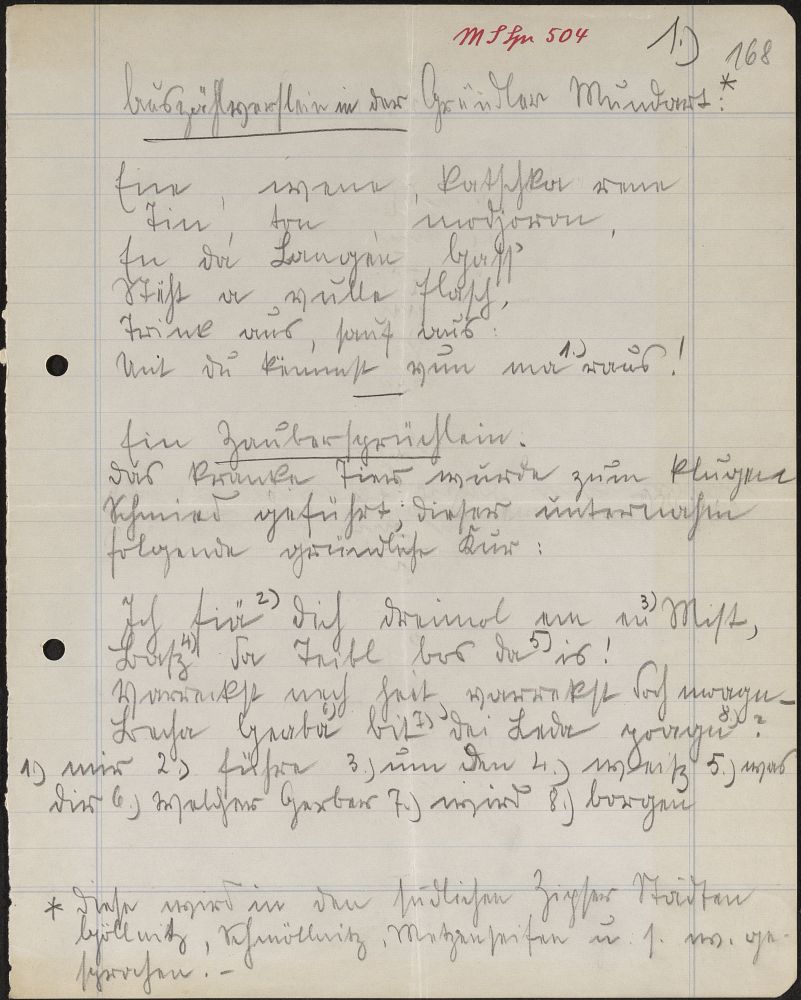 MSSpr 504
1.) 168
Auszählverslein in der Gründler Mundart:*
Ene, wene, katschka rene
Tin, ton, modjoron,
En da Langen Gass'
Steht a vulle Flasch,
Trink aus, sauf aus:
Unt du kemmst vun ma 1.) raus!
Ein Zaubersprüchlein.
Das kranke Tier wurde zum klugen
Schmied geführt; dieser unternahm
folgende gründliche Kur:
Ich fiä 2) dich dreimol em en 3) Mist,
Baß 4) da Teibl bos da 5) is!
Varreckst nech heit, varrekst doch moagn-
Becha Geaba 6) bit 7) dei Leda poagn 8)?
1.) mir 2.) führe 3.) um den 4.) weiß 5.) was
dir 6.) Welcher Gerber 7.) wird 8.) borgen
* Diese wird in den südlichen Zipser Städten
Göllnitz, Schmöllnitz, Metzenseifen u. s. w. ge-
sprochen. -